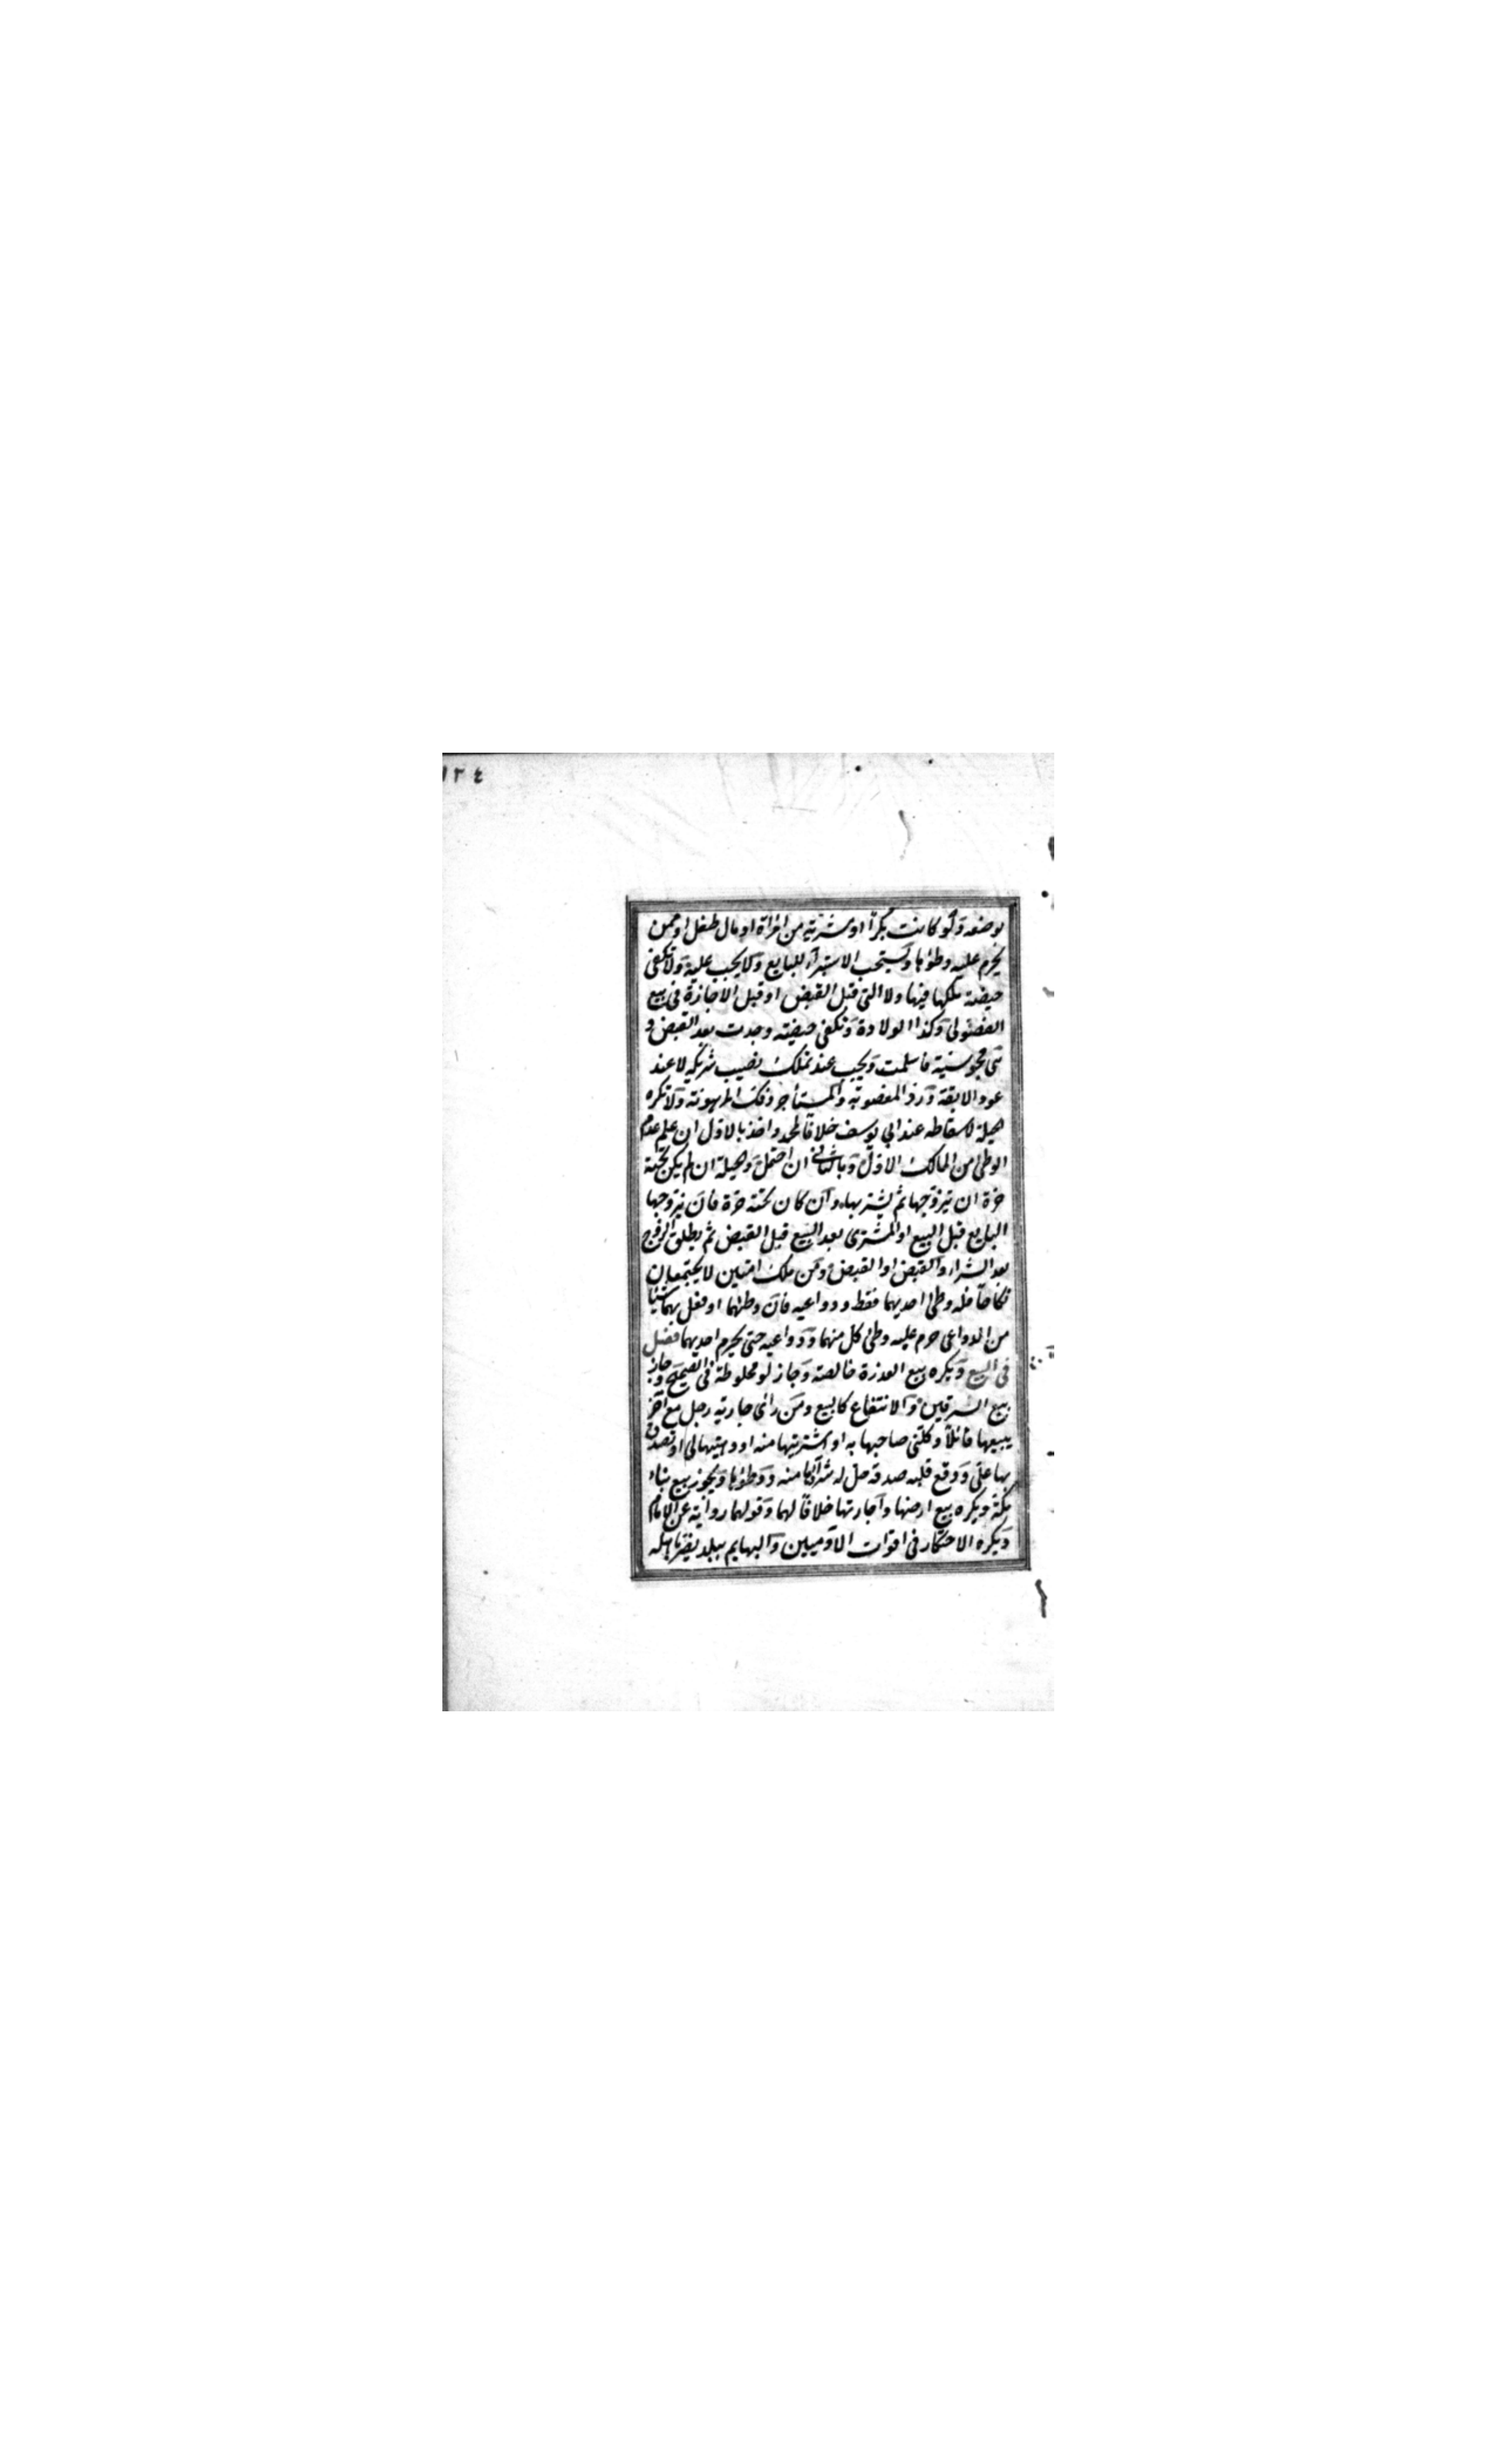 ١٣٤
بوضعه ولو كانت بكرا او مشرية من امرأة او مال طفل او ممن
يحرم عليه وطؤها ويستحب الاستبراء للبايع ولا يجب عليه ولا تكفى
حيضة ملكها فيها ولا التى قبل القبض او قبل الاجازة فى بيع
الفضولى وكذا الولادة وتكفى حيضة وجدت بعد القبض و
هى مجوسية فأسلمت ويجب عند تملك نصيب شريكه لا عند
عود الابقة ورد المغصوبة والمستأجرة وفك المرهونة ولا تكره
الحيلة لاسقاطه عند ابى يوسف خلافا لمحمد واخذ بالاول ان علم عدم
الوطئ من المالك الاول وبالثانى ان احتمل والحيلة ان لم يكن تحته
حرة ان يتزوجها ثم يشتريها وان كان تحته حرة فان يزوجها
البايع قبل البيع او المشترى بعد البيع قبل القبض ثم يطلق الزوج
بعد الشراء والقبض او القبض ومن ملك امتين لا يجتمعان
نكاحا فله وطئ احديهما فقط ودواعيه فان وطئهما او فعل بهما شيئا
من الدواعى حرم عليه وطئ كل منهما ودواعيه حتى يحرم احديهما فصل
فى البيع ويكره بيع العذرة خالصة وجاز لو مخلوطة فى الصحيح وجاز
بيع السرقين والانتفاع كالبيع ومن رأى جارية رجل مع آخر
يبيعها قائلا وكلنى صاحبها به او اشتريتها منه او وهبتها لى او تصدق
بها على ووقع قلبه صدقه حل له شراؤها منه ووطؤها ويجوز بيع بناء
مكة ويكره بيع ارضها واجارتها خلافا لهما وقولهما رواية عن الامام
ويكره الاحتكار فى اقوات الآدميين والبهايم ببلد يضر باهله